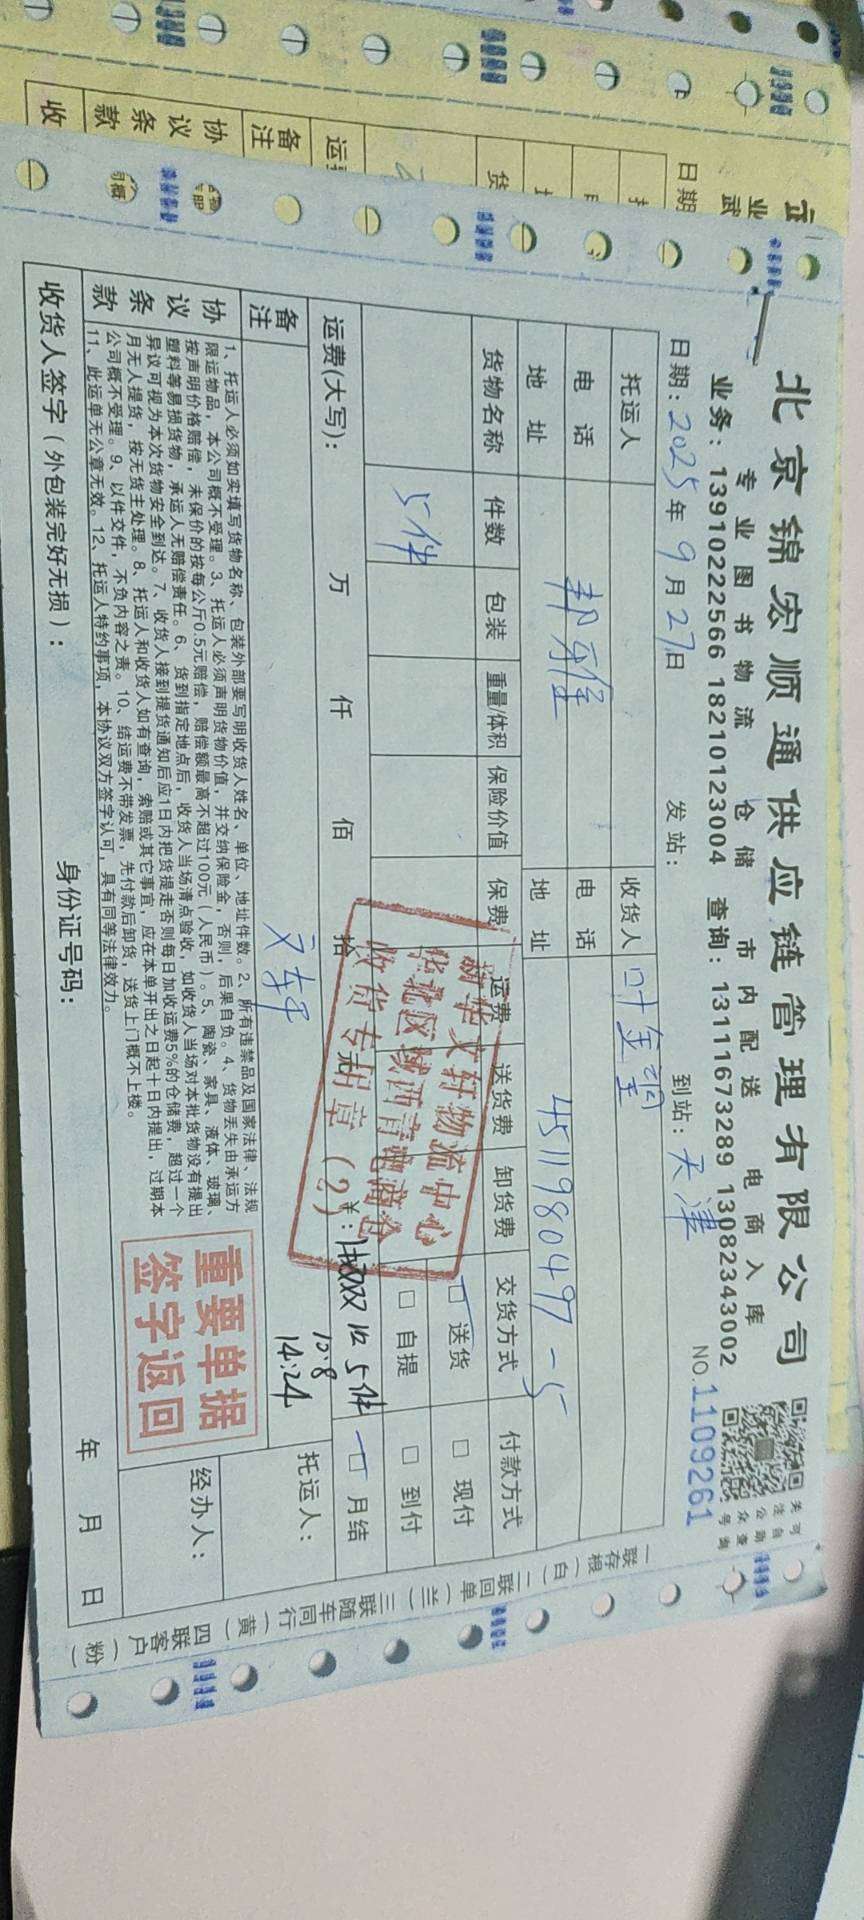 北京锦宏顺通供应链管理有限公司
专业图书物流 仓储 市内配送 电商入库
业务：13910222566 18210123004 查询：13111673289 13082343002
关注公众号
可自助查询
日期：2025年9月27日 发站： 到站：天津 NO.1109261
托运人 收货人 叶金调
电话 电话
地址 地址 4511980497-5
货物名称 件数 包装 重量/体积 保险价值 保费 运费 送货费 卸货费 交货方式 付款方式
5件 □送货 □现付
□自提 □到付
运费(大写)： 万 仟 佰 拾 元 ￥： □月结
新华文轩物流中心
华北区域西青电商仓
收货专用章（2）
收 5件
10.8
14:24
备注 文轩
托运人：
协议条款
1、托运人必须如实填写货物名称、包装外部要写明收货人姓名、单位、地址件数。2、所有违禁品及国家法律、法规
限运物品，本公司概不受理。3、托运人必须声明货物价值，并交纳保险金，否则，后果自负。4、货物丢失由承运方
按声明价格赔偿，未保价的按每公斤0.5元赔偿，赔偿额最高不超过100元（人民币）。5、陶瓷、家具、液体、玻璃、
塑料等易损货物，承运人无赔偿责任。6、货到指定地点后，收货人当场清点验收，如收货人当场对本批货物没有提出
异议可视为本次货物安全到达。7、收货人接到提货通知后应1日内把货提走否则每日加收运费5%的仓储费，超过一个
月无人提货，按无货主处理。8、托运人和收货人如有查询，索赔或其它事宜，应在本单开出之日起十日内提出，过期本
公司概不受理。9、以件交件，不负内容之责。10、结运费不带发票，先付款后卸货，送货上门概不上楼。
11、此运单无公章无效。12、托运人特约事项，本协议双方签字认可，具有同等法律效力。
重要单据
签字返回
经办人：
收货人签字（外包装完好无损）： 身份证号码： 年 月 日
一联存根（白）二联回单（兰）三联随车同行（黄）四联客户（粉）
业
武
日期
货
运
备注
协议条款
收